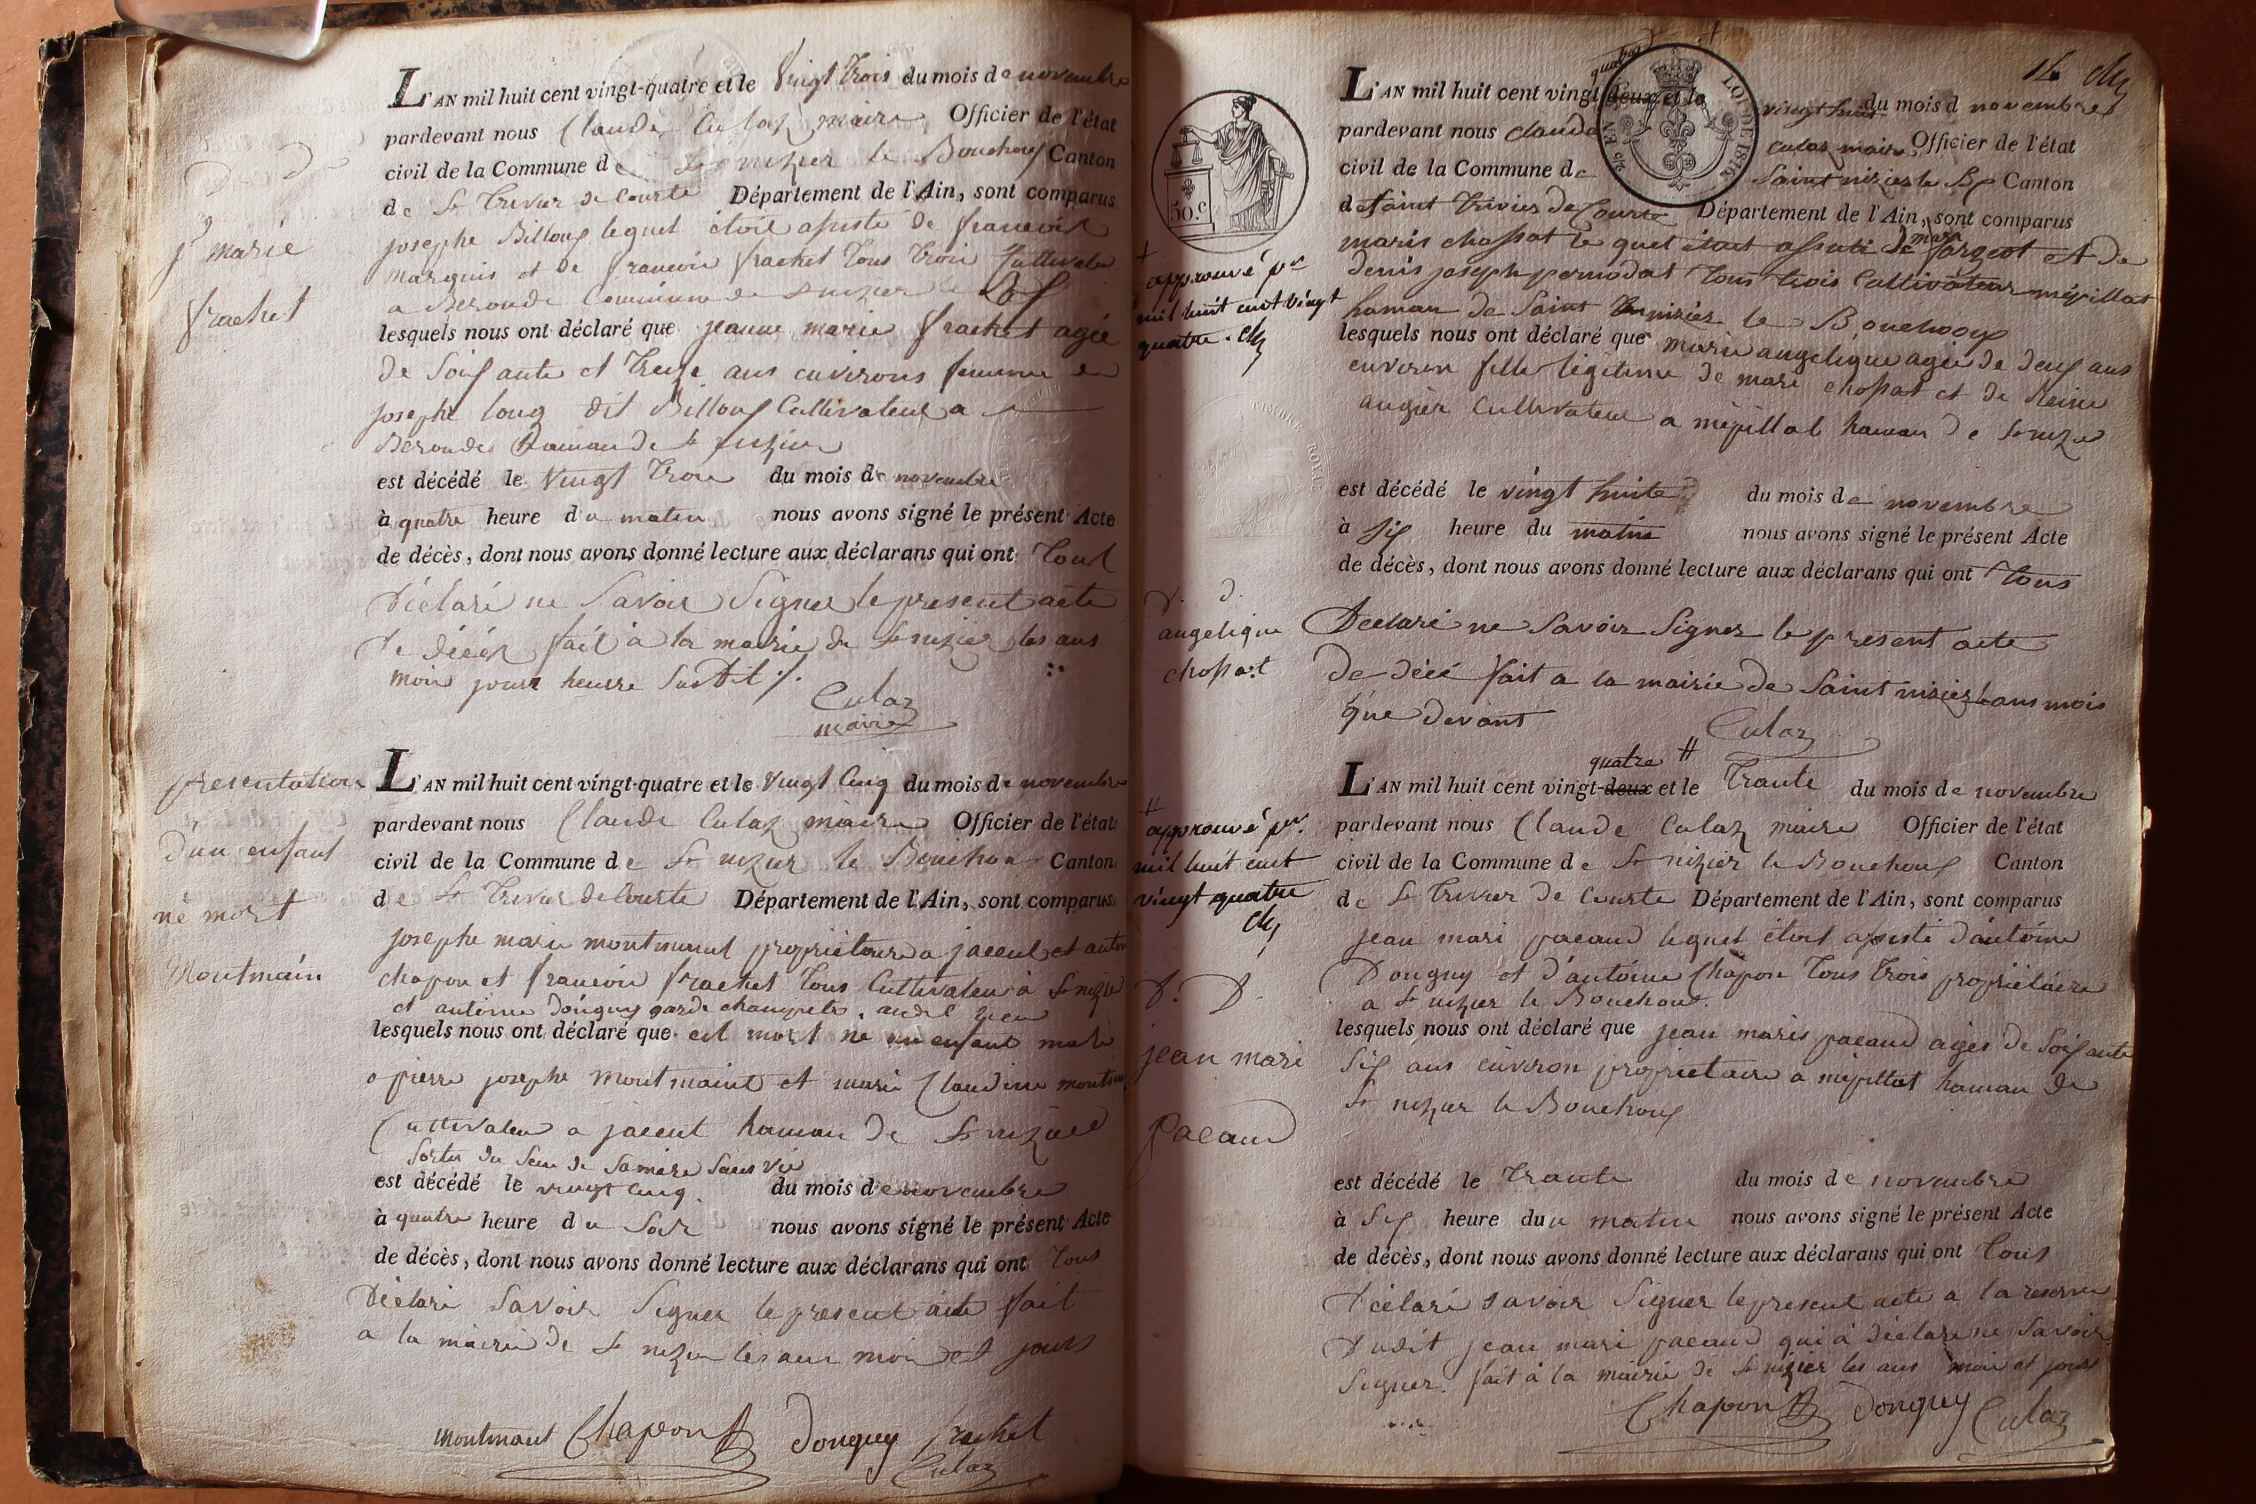 D D
je marie
frachet
L'AN mil huit cent vingt-quatre et le vingt trois du mois de novembre
pardevant nous Claude Culaz maire Officier de l'état
civil de la Commune de St nizier le Bouchoux Canton
de St Trivier de Courte Département de l'Ain, sont comparus
josephe Billoux lequel étoit asisté de francois
marquis et de francois frachet tous trois Cultivateur
a Beronde Commune de St nizier le
lesquels nous ont déclaré que jeanne marie frachet agée
de Soixante et treize ans environs femme de
josephe Long dit Billoux Cultivateur a
Beronde hamau de St nizier
est décédé le vingt trois du mois de novembre
à quatre heure du matin nous avons signé le présent Acte
de décès, dont nous avons donné lecture aux déclarans qui ont tous
Déclaré ne Savoir Signer le present acte
de décés fait à la mairie de St nizier les ans
mois jours heurre Susdit ./.
Culaz
maire
presentation
d'un enfant
né mort
Montmain
L'AN mil huit cent vingt-quatre et le vingt Cinq du mois de novembre
pardevant nous Claude Culaz maire Officier de l'état
civil de la Commune de St nizier le Bouchoux Canton
de St Trivier de Courte Département de l'Ain, sont comparus
josephe marie montmaint propriétaire a jaceul et antoine
chapon et francois frachet tous Cultivateur à St nizier
et antoine donguy garde champetre
lesquels nous ont déclaré que est mort né un enfant male
a pierre josephe Montmaint et marie Claudine
Cultivateur a jaceul hamau de St nizier
Sortis du Sein de Sa mère Sans vie
est décédé le vingt cinq du mois de novembre
à quatre heure du Soir nous avons signé le présent Acte
de décès, dont nous avons donné lecture aux déclarans qui ont tous
Déclaré Savoir Signer le present acte fait
a la mairie de St nizier les ans mois et jours
Montmaint Chapon Donguy frachet
Culaz
14
50.C
LOI DE 1816
+
approuvé pr
mil huit cent vingt
quatre.
D. D.
angelique
chossat
quatre +
L'AN mil huit cent vingt-deux et le vingt huit du mois d novembre
pardevant nous claude culaz maire Officier de l'état
civil de la Commune de Saint nizier le Bx Canton
de Saint Trivier de Courte Département de l'Ain, sont comparus
marie chossat le quel était assisté de marc forgeot et de
denis joseph permodat tous trois Cultivateur mépillat
hamau de Saint nizier le Bouchoux
lesquels nous ont déclaré que marie angelique agée de deux ans
environ fille légitime de marie chossat et de Reine
augier Cultivateur a mépillat hamau de St nizier
est décédé le vingt huite du mois de novembre
à Six heure du matin nous avons signé le présent Acte
de décès, dont nous avons donné lecture aux déclarans qui ont tous
Déclaré ne Savoir Signer le present acte
de décé fait a la mairie de Saint nizier les ans mois
que devant
Culaz
#
approuvé pr.
mil huit cent
vingt quatre
D. D.
jean mari
pacaud
quatre #
L'AN mil huit cent vingt-deux et le Trante du mois de novembre
pardevant nous Claude Culaz maire Officier de l'état
civil de la Commune de St nizier le Bouchoux Canton
de St Trivier de Courte Département de l'Ain, sont comparus
jean mari pacaud lequel étoit asisté d'antoine
Donguy et d'antoine Chapon tous trois propriétaire
a St nizier le Bouchoux.
lesquels nous ont déclaré que jean marie pacaud agés de Soixante
Six ans environ propriétaire a mépillat hamau de
St nizier le Bouchoux
est décédé le Trante du mois de novembre
à Six heure du matin nous avons signé le présent Acte
de décès, dont nous avons donné lecture aux déclarans qui ont tous
Déclaré savoir Signer le present acte a la reserve
Dudit jean mari pacaud qui à déclaré ne Savoir
Signer. fait à la mairie de St nizier les ans mois et jours
Chapon Donguy Culaz